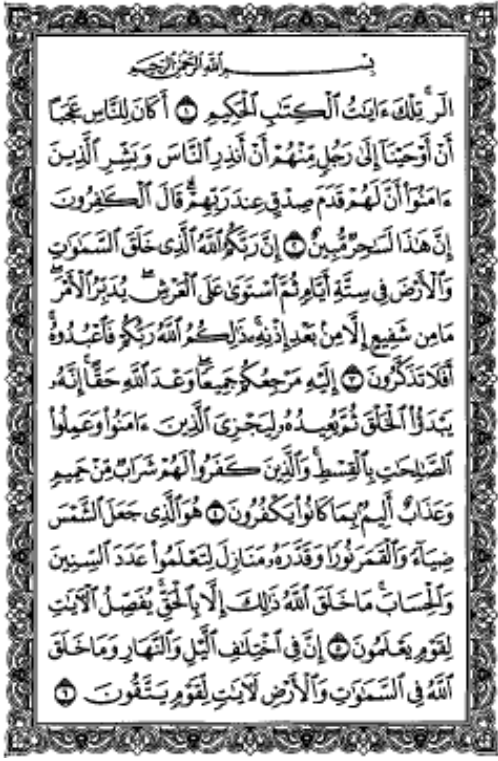 بِسْمِ اللَّهِ الرَّحْمَٰنِ الرَّحِيمِ
الٓر ۚ تِلْكَ ءَايَٰتُ ٱلْكِتَٰبِ ٱلْحَكِيمِ ١ أَكَانَ لِلنَّاسِ عَجَبًا
أَنْ أَوْحَيْنَآ إِلَىٰ رَجُلٍ مِّنْهُمْ أَنْ أَنذِرِ ٱلنَّاسَ وَبَشِّرِ ٱلَّذِينَ
ءَامَنُوٓا۟ أَنَّ لَهُمْ قَدَمَ صِدْقٍ عِندَ رَبِّهِمْ ۗ قَالَ ٱلْكَٰفِرُونَ
إِنَّ هَٰذَا لَسَٰحِرٌ مُّبِينٌ ٢ إِنَّ رَبَّكُمُ ٱللَّهُ ٱلَّذِى خَلَقَ ٱلسَّمَٰوَٰتِ
وَٱلْأَرْضَ فِى سِتَّةِ أَيَّامٍ ثُمَّ ٱسْتَوَىٰ عَلَى ٱلْعَرْشِ ۖ يُدَبِّرُ ٱلْأَمْرَ ۖ
مَا مِن شَفِيعٍ إِلَّا مِنۢ بَعْدِ إِذْنِهِۦ ۚ ذَٰلِكُمُ ٱللَّهُ رَبُّكُمْ فَٱعْبُدُوهُ ۚ
أَفَلَا تَذَكَّرُونَ ٣ إِلَيْهِ مَرْجِعُكُمْ جَمِيعًا ۖ وَعْدَ ٱللَّهِ حَقًّا ۚ إِنَّهُۥ
يَبْدَؤُا۟ ٱلْخَلْقَ ثُمَّ يُعِيدُهُۥ لِيَجْزِىَ ٱلَّذِينَ ءَامَنُوا۟ وَعَمِلُوا۟
ٱلصَّٰلِحَٰتِ بِٱلْقِسْطِ ۚ وَٱلَّذِينَ كَفَرُوا۟ لَهُمْ شَرَابٌ مِّنْ حَمِيمٍ
وَعَذَابٌ أَلِيمٌۢ بِمَا كَانُوا۟ يَكْفُرُونَ ٤ هُوَ ٱلَّذِى جَعَلَ ٱلشَّمْسَ
ضِيَآءً وَٱلْقَمَرَ نُورًا وَقَدَّرَهُۥ مَنَازِلَ لِتَعْلَمُوا۟ عَدَدَ ٱلسِّنِينَ
وَٱلْحِسَابَ ۚ مَا خَلَقَ ٱللَّهُ ذَٰلِكَ إِلَّا بِٱلْحَقِّ ۚ يُفَصِّلُ ٱلْءَايَٰتِ
لِقَوْمٍ يَعْلَمُونَ ٥ إِنَّ فِى ٱخْتِلَٰفِ ٱلَّيْلِ وَٱلنَّهَارِ وَمَا خَلَقَ
ٱللَّهُ فِى ٱلسَّمَٰوَٰتِ وَٱلْأَرْضِ لَءَايَٰتٍ لِّقَوْمٍ يَتَّقُونَ ٦